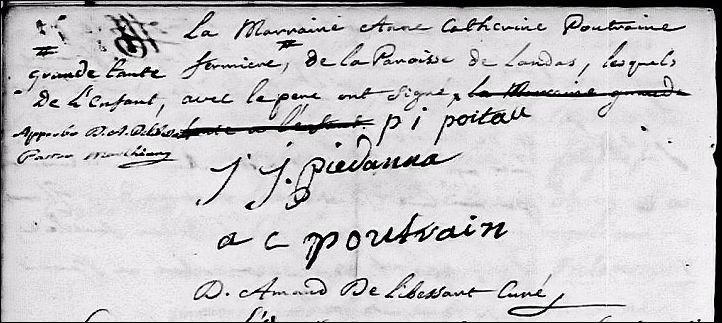 La Marraine Anne Catherine Poutraine
# grande tante fermiere, # de la Paroisse de Landas, lesquels
De L'Enfant, avec le pere ont signé, la Marraine grande
Approbé D. A. Delib tante a l'enfant p i poitau
Pastor Marchian
J J. piedanna
a c poutrain
D. Amand De Libessart Curé